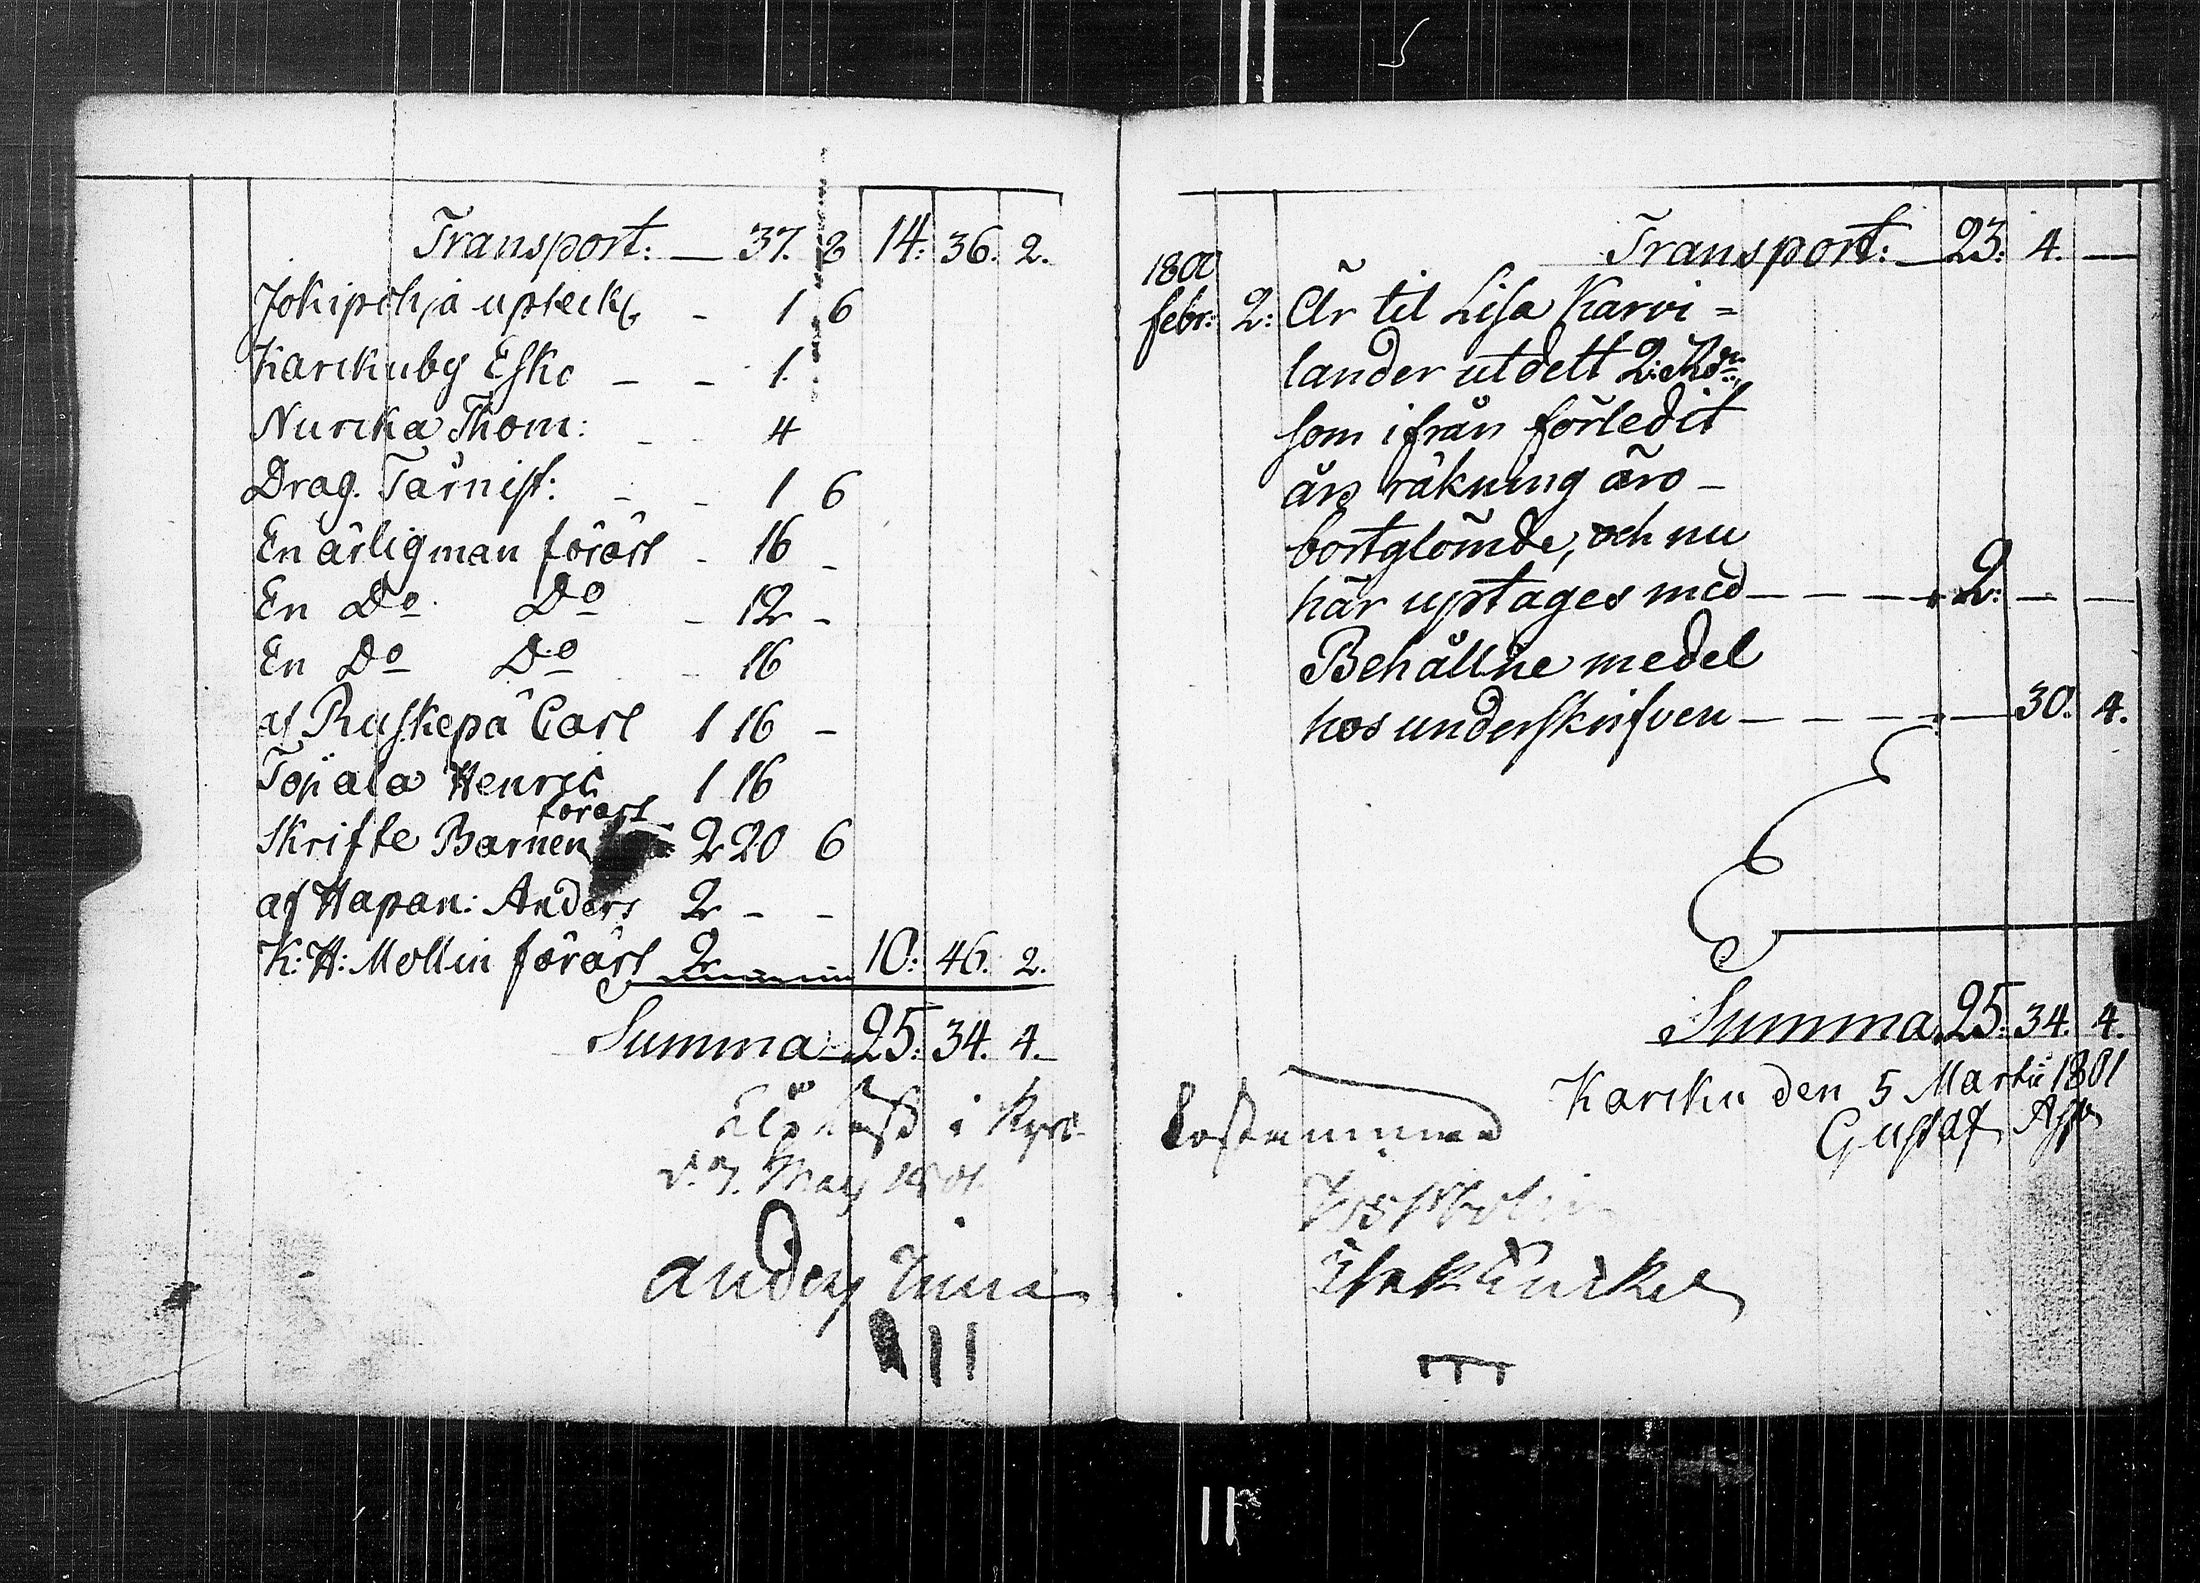 Transport: — 37. 2 14: 36. 2.
Jokipohja upteckt - 1 6
Karckuby Esko - - 1.
Nurcka Thom: - - 4
Drag. Tärnist: - - 1 6
En ärlig man förärt - 16 -
En Do Do - 12 -
En Do Do - 16
af Ruskepä Carl 1 16 -
Tojiala Henric 1 16
förärt
Skrifte Barnen 2 20 6
af Hapan: Anders 2 - -
K: H: Mollin förärt 2 10: 46. 2.
Summa 25: 34. 4.
i Kyrc-
d. 7. May 1801
Anders
Transport: — 23: 4. —
1800
febr: 2: Är til Lisa Karvi=
lander utdelt 2: Rdr
som ifrån förledit
års räkning äro -
bortglömde, och nu
här uptages med - - - - 2: - -
Behållne medel
hos underskrifven - - - - 30. 4.
Summa 25: 34. 4.
Karcku den 5 Martii 1801
Gustaf
Isak